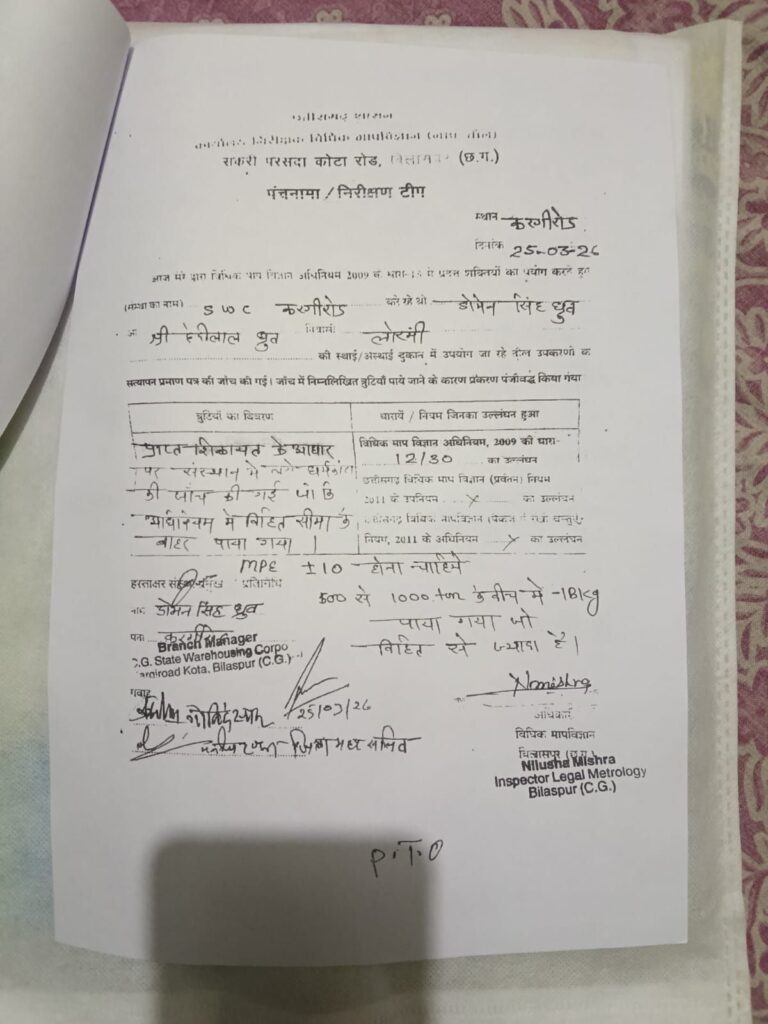 छत्तीसगढ़ शासन
कार्यालय निरीक्षक विधिक मापविज्ञान (नाप तौल)
सकरी परसदा कोटा रोड, बिलासपुर (छ.ग.)
पंचनामा / निरीक्षण टीप
स्थान करगीरोड
दिनांक 25-03-26
आज मेरे द्वारा विधिक माप विज्ञान अधिनियम 2009 की धारा-15 में प्रदत्त शक्तियों का प्रयोग करते हुए
(संस्था का नाम) S W C करगीरोड श्री डोमन सिंह ध्रुव
श्री हरीलाल ध्रुव निवासी लोरमी
की स्थाई/अस्थाई दुकान में उपयोग जा रहे तौल उपकरणों के
सत्यापन प्रमाण पत्र की जांच की गई। जांच में निम्नलिखित त्रुटियाँ पाये जाने के कारण प्रकरण पंजीवद्ध किया गया
त्रुटियों का विवरण
धारायें / नियम जिनका उल्लंघन हुआ
प्राप्त शिकायत के आधार
पर संस्थान में लगे धर्मकांटा
की जांच की गई जो कि
अधिनियम में विहित सीमा के
बाहर पाया गया।
विधिक माप विज्ञान अधिनियम, 2009 की धारा-
12/30 का उल्लंघन
छत्तीसगढ़ विधिक माप विज्ञान (प्रवर्तन) नियम
2011 के उपनियम X का उल्लंघन
नियम, 2011 के अधिनियम X का उल्लंघन
MPE ±10 होना चाहिये
500 से 1000 के बीच में -18kg
पाया गया जो
विहित से ज्यादा है।
हस्ताक्षर प्रतिनिधि
नाम डोमन सिंह ध्रुव
पता करगीरोड
Branch Manager
C.G. State Warehousing Corpo
Kargiroad Kota, Bilaspur (C.G.)
गवाह
25/03/26
अधिकारी
विधिक मापविज्ञान
बिलासपुर (छ.ग.)
Nilusha Mishra
Inspector Legal Metrology
Bilaspur (C.G.)
P.T.O